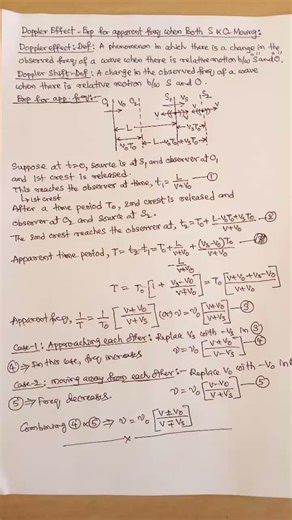 Doppler Effect - Exp for apparent freq when Both S & O Moving:
Doppler effect: Def: A phenomenon in which there is a change in the
observed freq of a wave when there is relative motion b/w S and O.
Doppler Shift-Def: A change in the observed freq of a wave
when there is relative motion b/w S and O.
Exp for app. freq:-
O₁ V₀ O₂ S₁ Vs S₂
V V
L VsT₀
V₀T₀ L-V₀T₀+VsT₀
Suppose at t=0, source is at S₁ and observer at O₁
and 1st crest is released.
This reaches the observer at time, t₁ = L/(V+V₀) —①
↳ 1st crest
After a time period T₀, 2nd crest is released and
observer at O₂ and source at S₂.
The 2nd crest reaches the observer at, t₂ = T₀ + (L-V₀T₀+VsT₀)/(V+V₀) —②
Apparent time period, T = t₂-t₁ = T₀ + L/(V+V₀) + (Vs-V₀)T₀/(V+V₀)
- L/(V+V₀)
T = T₀ [1 + (Vs-V₀)/(V+V₀)] = T₀ [(V+V₀+Vs-V₀)/(V+V₀)]
Apparent freq, 1/T = 1/T₀ [(V+V₀)/(V+Vs)] (or) ν = ν₀ [(V+V₀)/(V+Vs)] —③
Case-1: Approaching each other: Replace Vs with -Vs in ③
④ ⇒ In this case, freq increases ν = ν₀ [(V+V₀)/(V-Vs)] —④
Case-2: Moving away from each other:- Replace V₀ with -V₀ in
⑤ ⇒ Freq decreases ν = ν₀ [(V-V₀)/(V+Vs)] —⑤
Combining ④ & ⑤ ⇒ ν = ν₀ [(V±V₀)/(V∓Vs)]
x